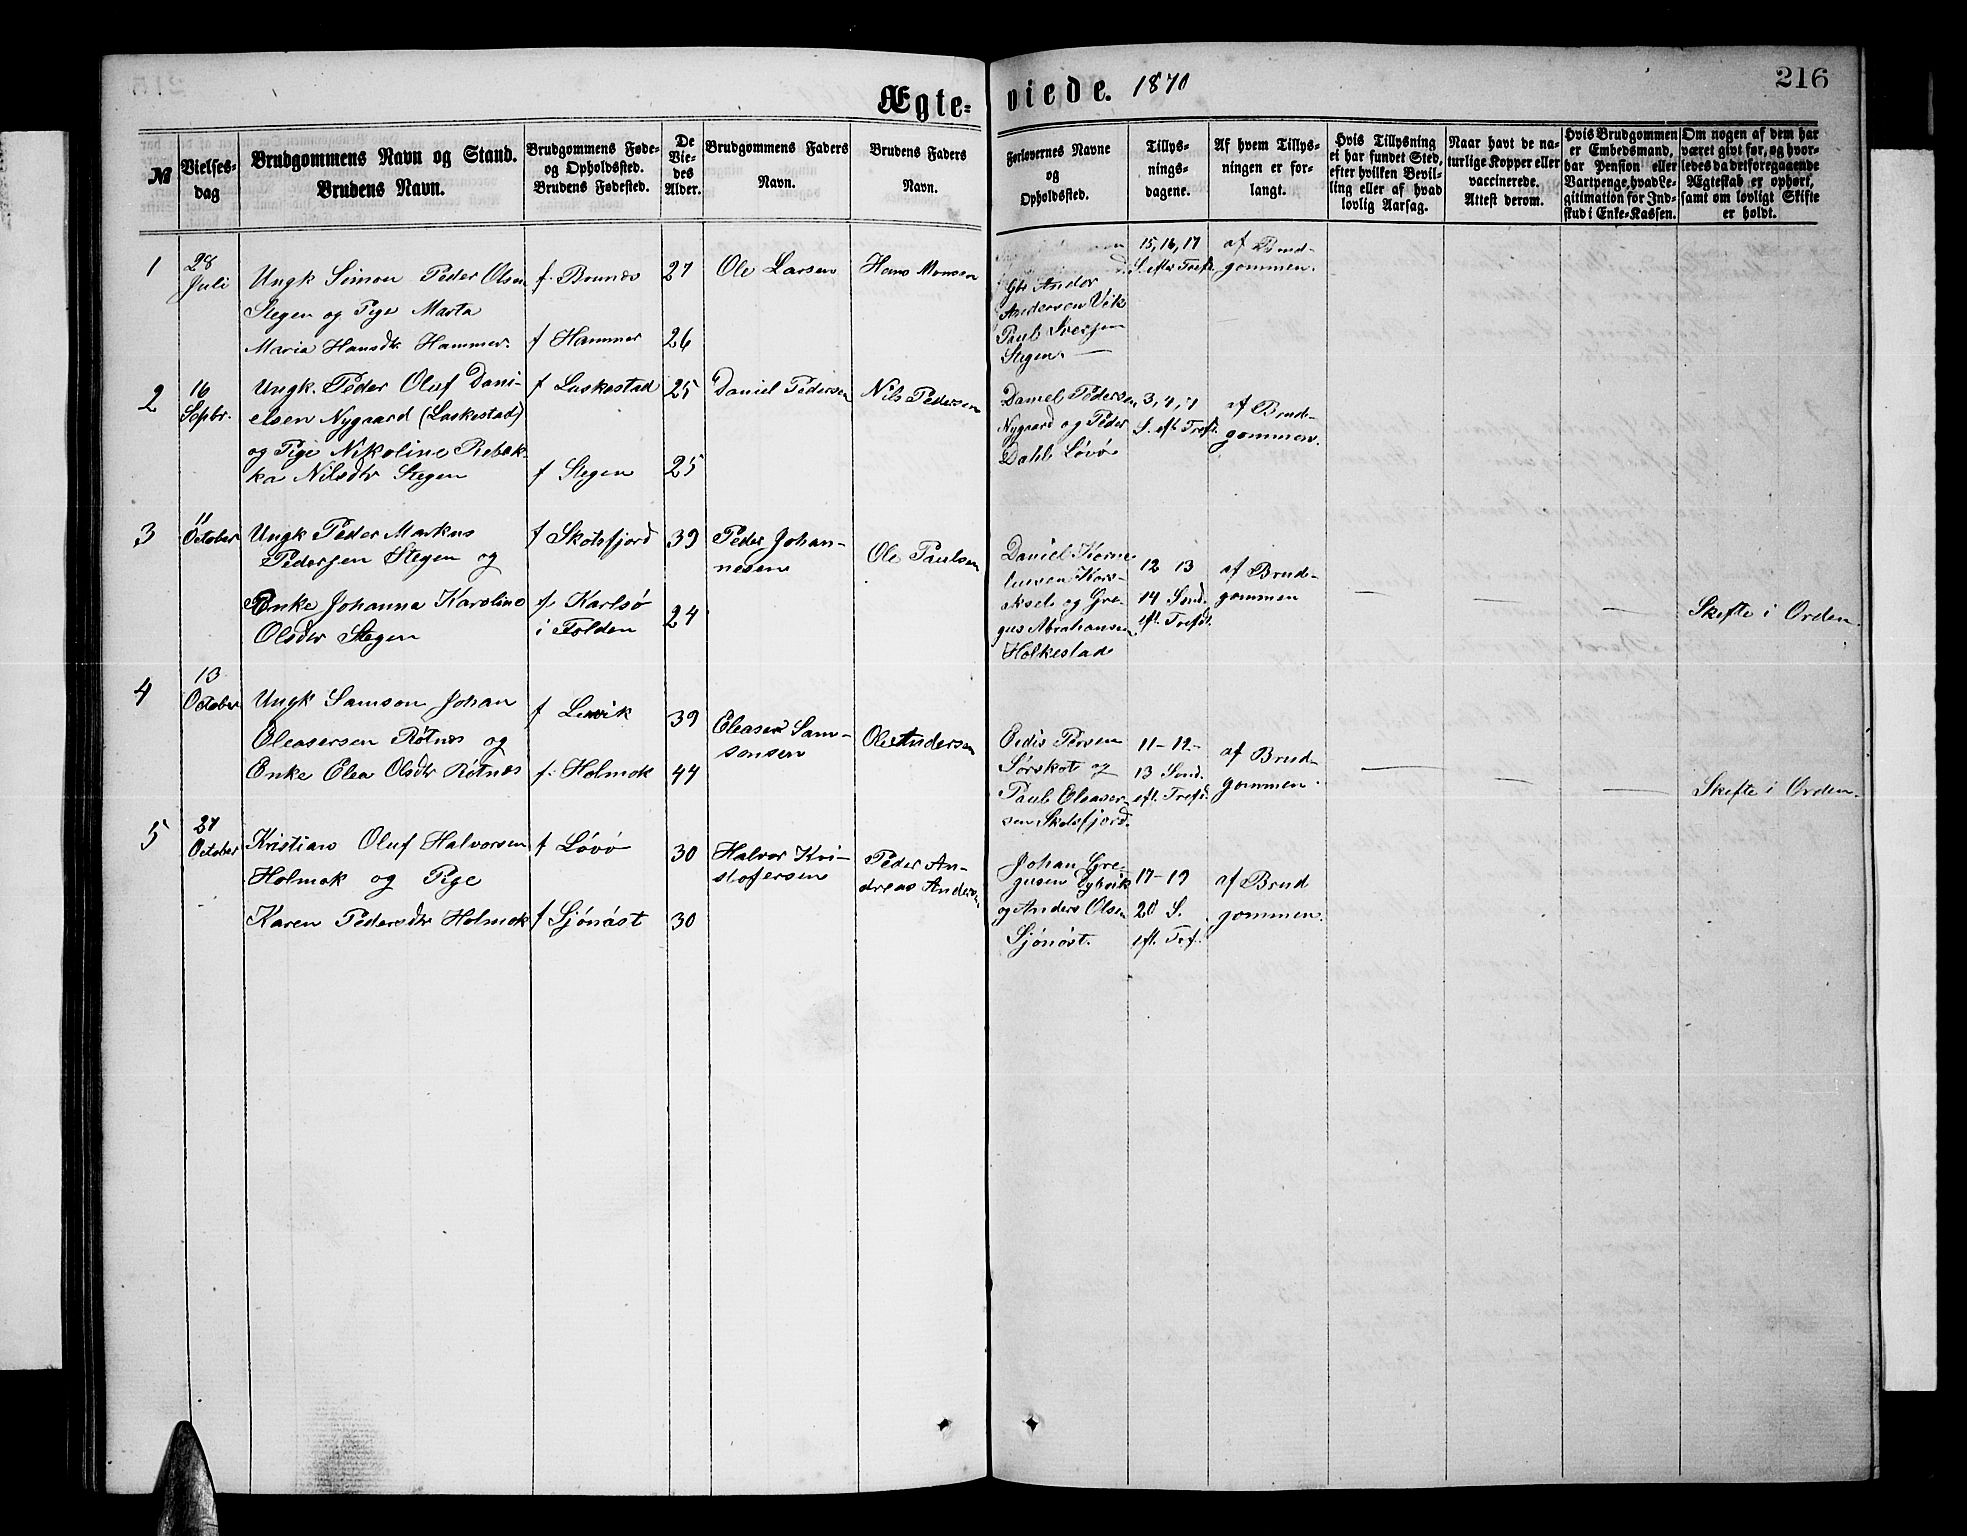 Ægteviede. 1870
216
№
Vielses-
dag
Brudgommens Navn og Stand.
Brudens Navn.
Brudgommens Føde-
og Opholdssted.
Brudens Fødested.
De
Vie-
des
Alder.
Brudgommens Faders
Navn.
Brudens Faders
Navn.
Forlovernes Navne
og
Opholdssted.
Tillys-
nings-
dagene.
Af hvem Tillys-
ningen er for-
langt.
Hvis Tillysning
ei har fundet Sted,
efter hvilken Bevil-
ling eller af hvad
lovlig Aarsag.
Naar havt de na-
turlige Kopper eller
vaccinerede.
Attest derom.
Hvis Brudgommen
er Embedsmand,
har Pension eller
Vartpenge, hvad Le-
gitimation for Ind-
skud i Enke-Kassen.
Om nogen af dem har
været givt før, og hvor-
ledes da det foregaaende
Ægteskab er ophørt,
samt om lovligt Skifte
er holdt.
1
28
Juli
Ungk Simon Peder Olsen
Stegen og Pige Marta
Maria Hansdtr Hammer.
f. Brunes
f Hammer
27
26
Ole Larsen
Hans Monsen
Gbr Ander
Andersen Vik
Paul Iversen
Stegen.
15, 16, 17
S. efter Trefd.
af Brud-
gommen.
2
16
Sepbr.
Ungk. Peder Oluf Dani-
elsen Nygaard (Laskestad)
og Pige Nikoline Rebek-
ka Nilsdtr Stegen
f Laskestad
f Stegen
25
25
Daniel Pedersen
Nils Pedersen
Daniel Pedersen
Nygaard og Peder
Dahl Løvø
3, 4, 7
S. eft. Trefd.
af Brud-
gommen.
3
11
October
Ungk Peder Markus
Pedersen Stegen og
Enke Johanna Karoline
Olsdtr Stegen
f Skotsfjord
f. Karlsø
i Folden
39
24
Peder Johan-
nesen
Ole Paulsen
Daniel Korne-
liusen Kors-
og Gre-
gus Abrahamsen
Holkestad
12 13
14 Sønd.
eft. Trefdt.
af Brud-
gommen
Skifte i Orden.
4
13
October
Ungk Samson Johan
Eleasersen Røtnes og
Enke Elea Olsdtr Røtnes
f Leervik
f. Holmok
39
44
Eleaser Sam-
sonsen
Ole Andersen
Persen
Sørskot og
Paul Eleaser-
sen Skotsfjord.
11 - 12 -
13 Sønd.
eft. Trefd.
af Brud-
gommen
Skifte i Orden.
5
27
October
Kristian Oluf Halvorsen
Holmok og Pige
Karen Pedersdtr Holmok
f Løvø
f Sjönäst
30
30
Halvor Kri-
stofersen
Peder An-
dreas Andersen
Johan Gre-
gusen Egkvik
og Anders Olsen
Sjönöst.
17 - 19
20 S.
eft. Tref.
af Brud
gommen.